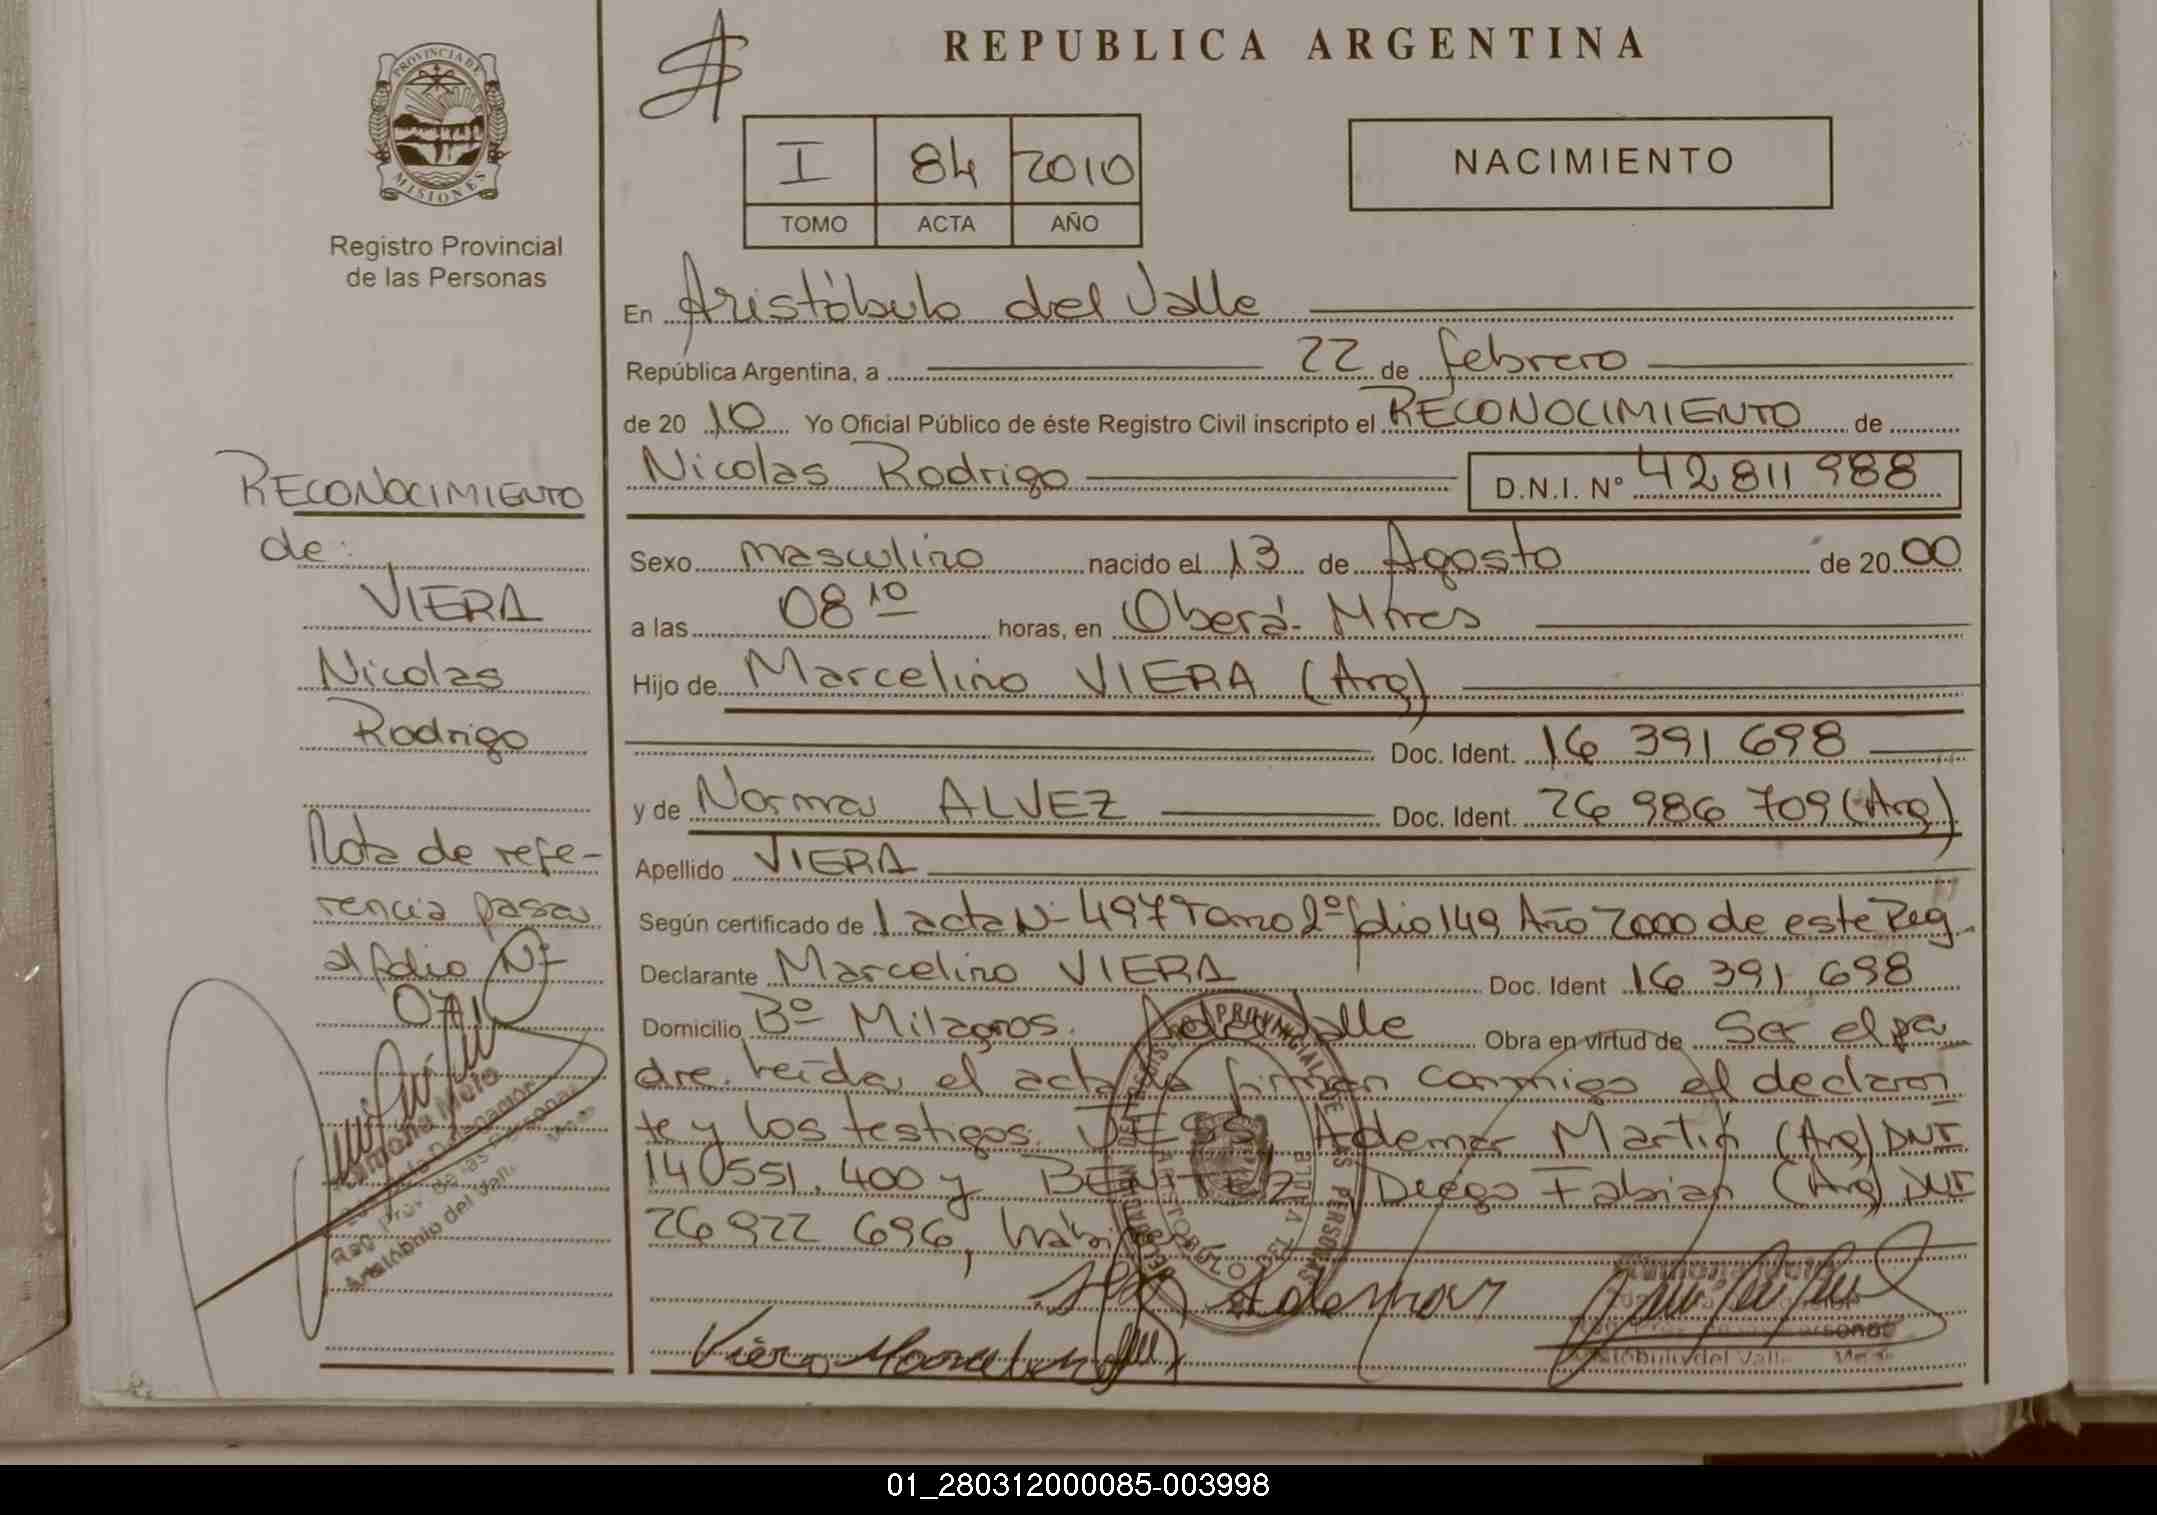 REPUBLICA ARGENTINA
PROVINCIA DE MISIONES
Registro Provincial
de las Personas
I 84 2010
TOMO ACTA AÑO
NACIMIENTO
En Aristóbulo del Valle
República Argentina, a 22 de febrero
de 20 10 Yo Oficial Público de éste Registro Civil inscripto el RECONOCIMIENTO de
Nicolas Rodrigo D.N.I. Nº 42 811 988
Sexo masculino nacido el 13 de Agosto de 20 00
a las 08 10 horas, en Oberá - Mnes
Hijo de Marcelino VIERA (Arg)
Doc. Ident. 16 391 698
y de Norma ALVEZ Doc. Ident. 26 986 709 (Arg)
Apellido VIERA
Según certificado de 1 acta Nº 497 Tomo 2º folio 149 Año 2000 de este Reg.
Declarante Marcelino VIERA Doc. Ident 16 391 698
Domicilio Bº Milagros. A del Valle Obra en virtud de Ser el pa
dre. Leída el acta la firman conmigo el declaran
te y los testigos: Ademar Martin (Arg) DNI
14 0551.400 y BENITEZ Diego Fabian (Arg) DNI
26 922 696,
Ademar
Viera Marcelino
RECONOCIMIENTO
de:
VIERA
Nicolas
Rodrigo
Nota de refe-
rencia pasa
al folio Nº
071
Aristóbulo del Valle
01_280312000085-003998